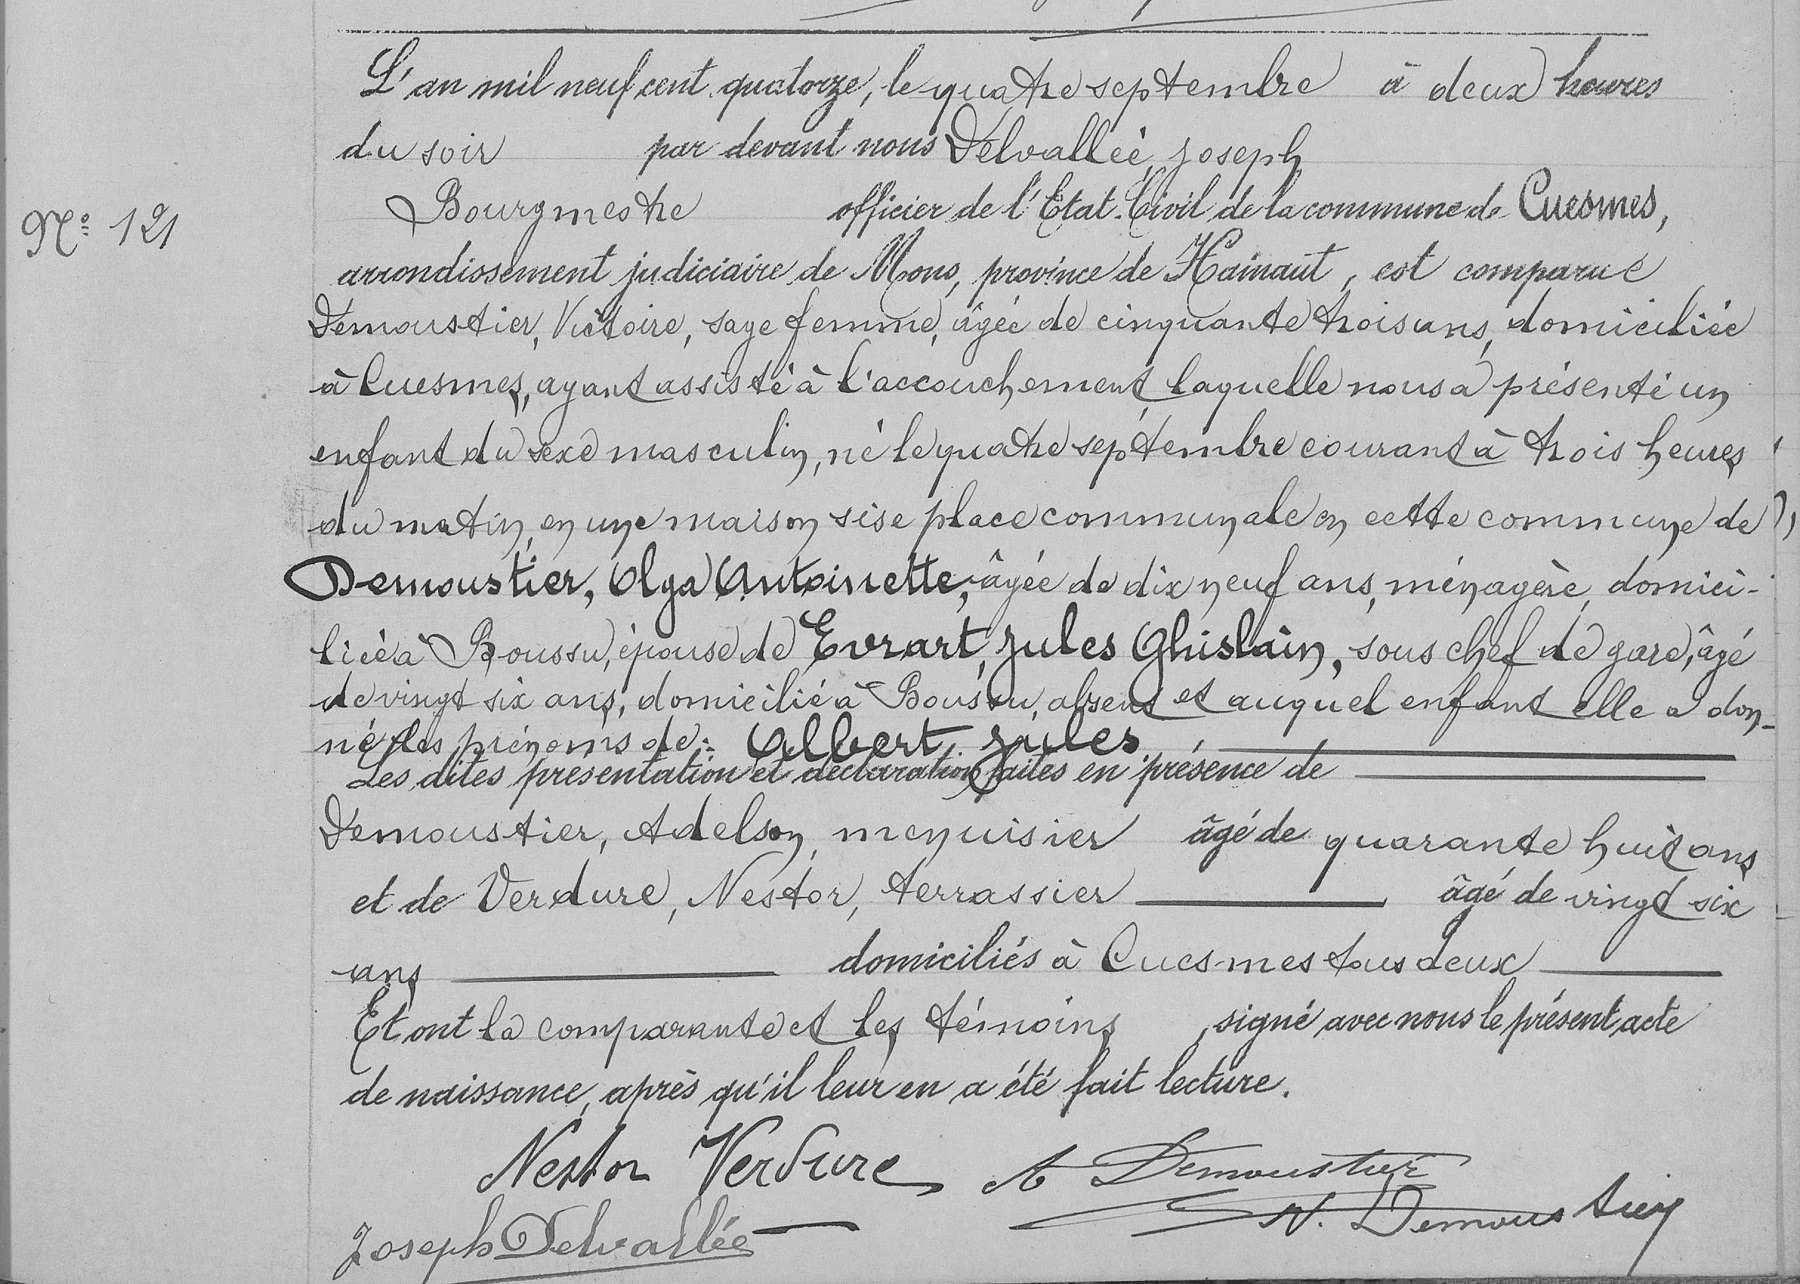 L'an mil neuf cent quatorze, le quatre septembre à deux heures
du soir par devant nous Delvallée, Joseph
Bourgmestre officier de l'Etat-Civil de la commune de Cuesmes,
Nº 121
arrondissement judiciaire de Mons, province de Hainaut, est comparue
Demoustier, Victoire, sage femme, âgée de cinquante trois ans, domiciliée
à Cuesmes, ayant assisté à l'accouchement, laquelle nous a présenté un
enfant du sexe masculin, né le quatre septembre courant à trois heures
du matin, en une maison sise place communale en cette commune de
Demoustier, Olga Antoinette, âgée de dix neuf ans, ménagère, domici-
liée à Boussu, épouse de Evrart, Jules Ghislain, sous chef de gare, âgé
de vingt six ans, domicilié à Boussu, absent et auquel enfant elle a don-
né les prénoms de: Albert, Jules
Les dites présentation et déclaration faites en présence de
Demoustier, Adelson, menuisier âgé de quarante huit ans
et de Verdure, Nestor, terrassier âgé de vingt six
ans domiciliés à Cuesmes tous deux
Et ont la comparante et les témoins, signé avec nous le présent acte
de naissance, après qu'il leur en a été fait lecture.
Nestor Verdure A Demoustier
V. Demoustier
Joseph Delvallée